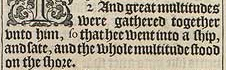 2 And great multitudes
were gathered together
vnto him, so that hee went into a ship,
and sate, and the whole multitude stood
on the shore.